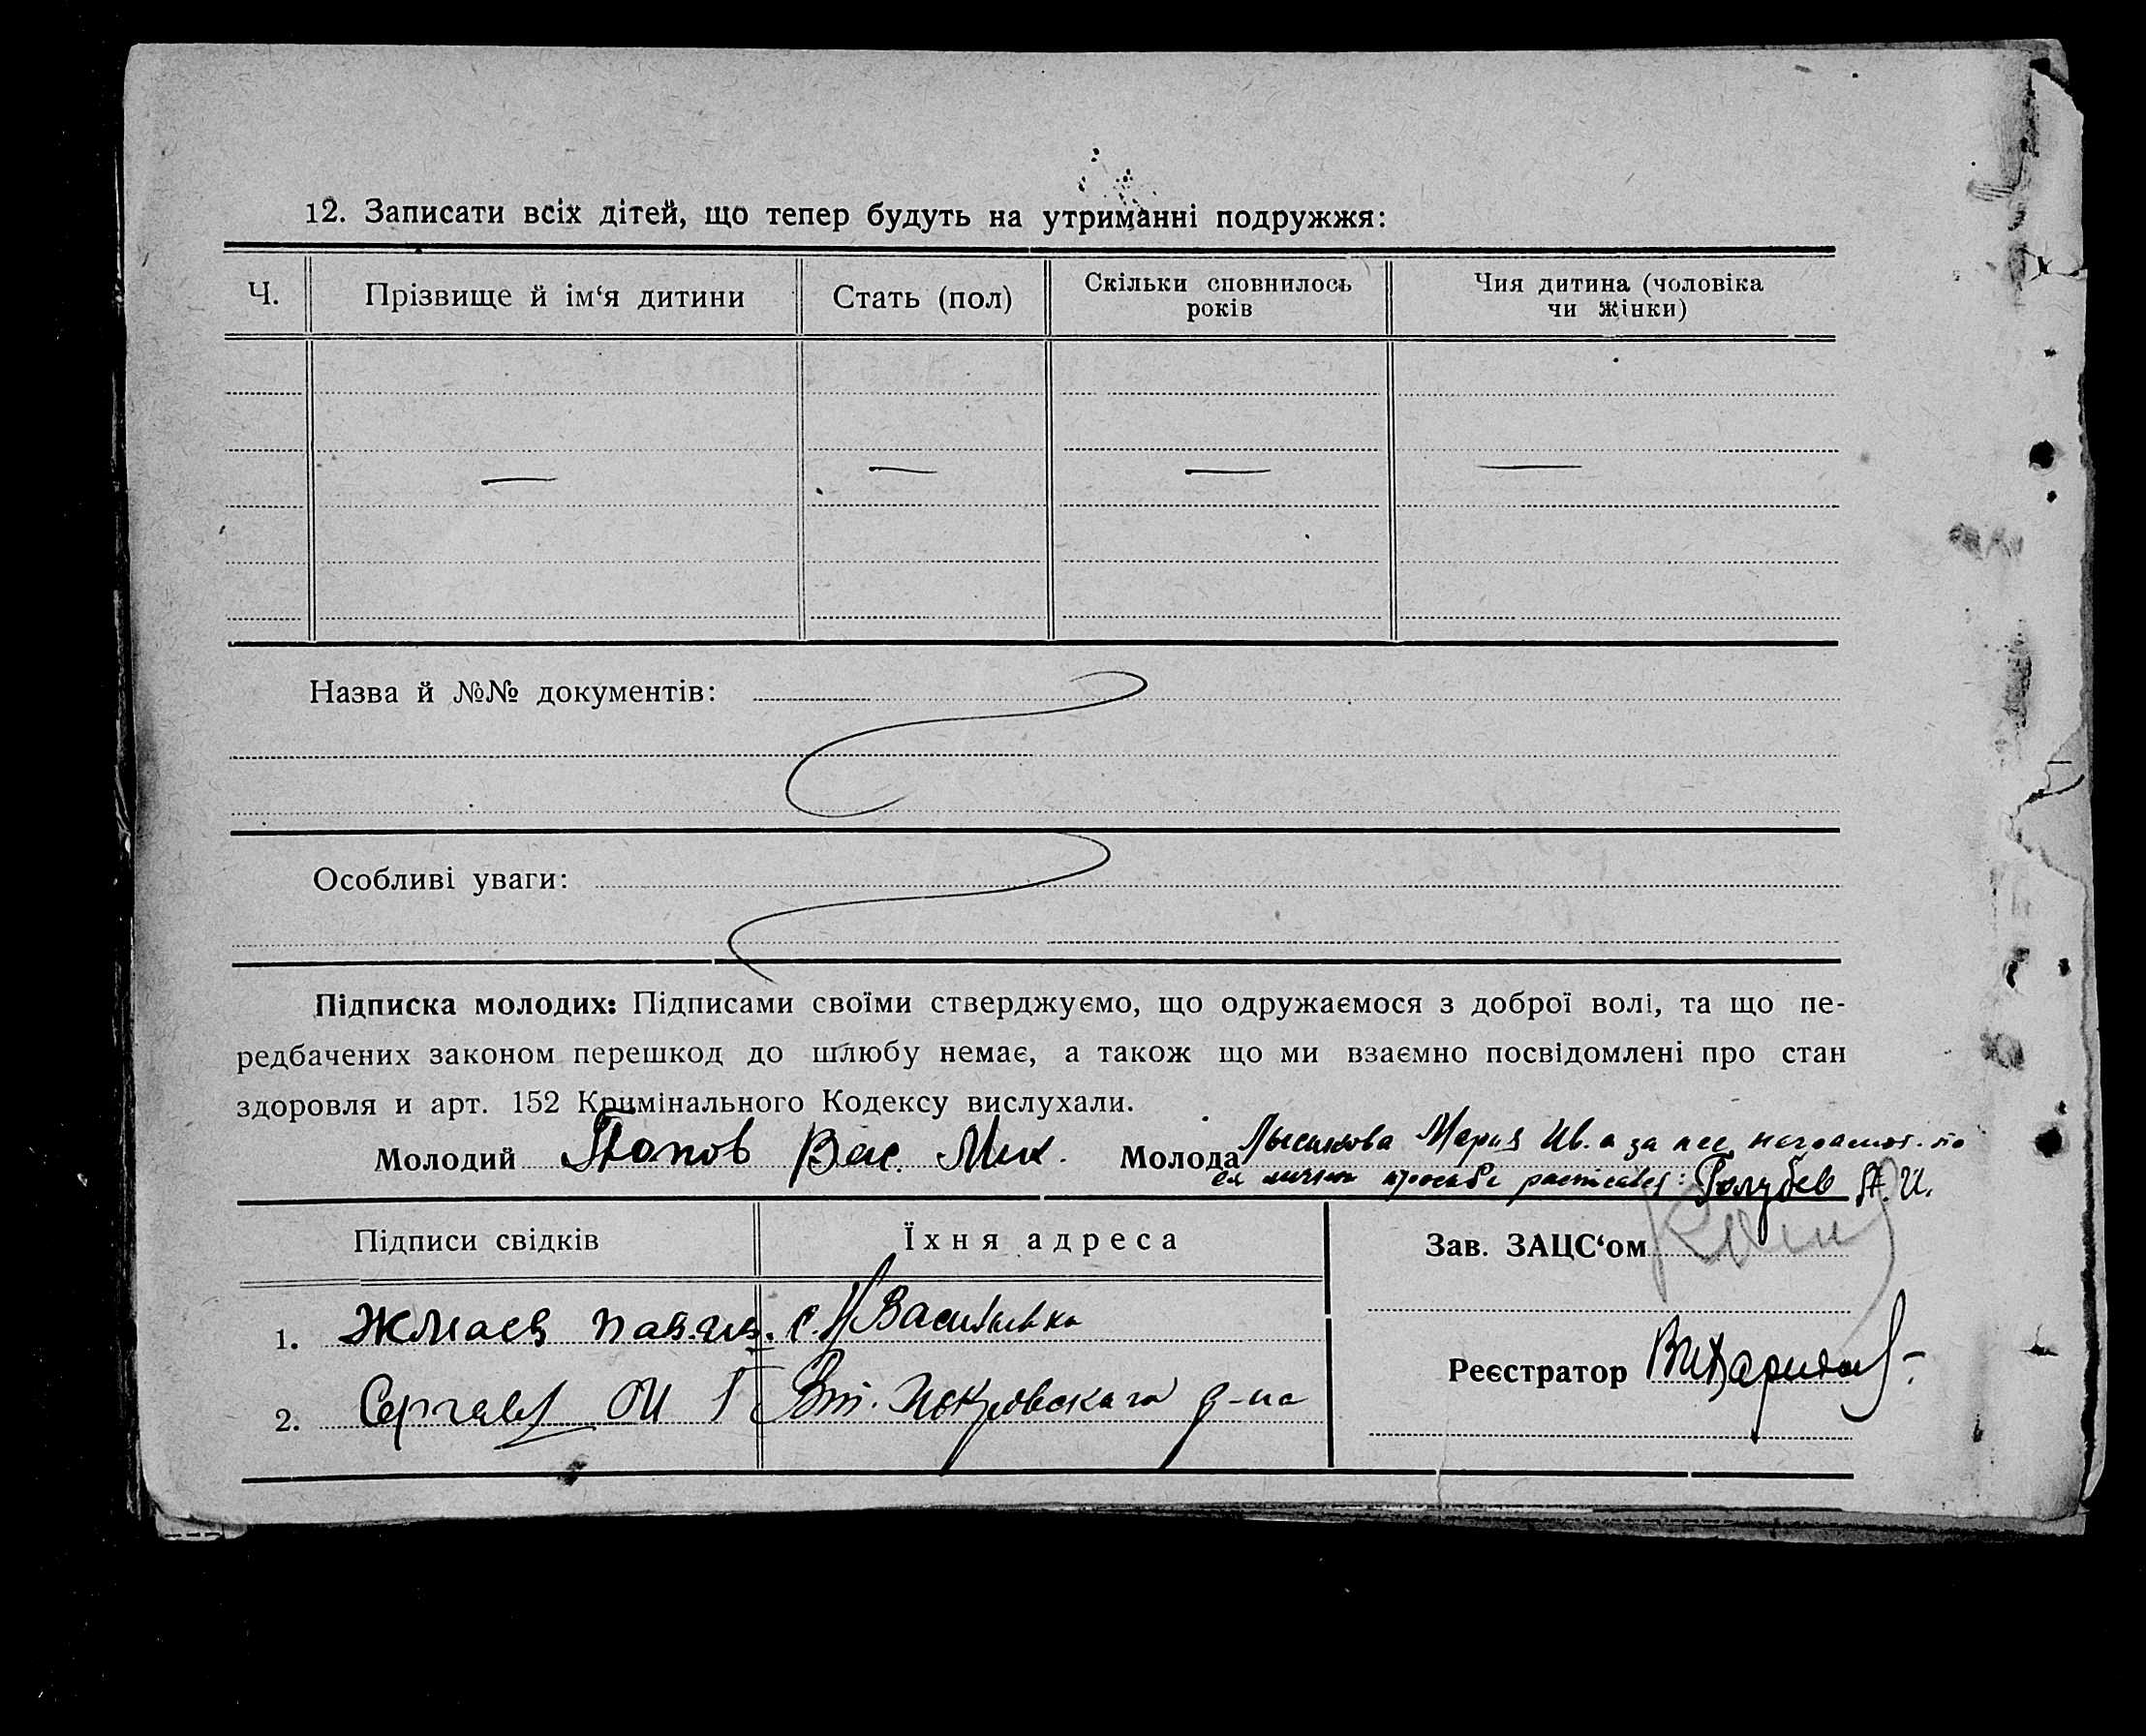 12. Записати всіх дітей, що тепер будуть на утриманні подружжя:
Ч. Прізвище й ім‘я дитини Стать (пол) Скільки сповнилось років Чия дитина (чоловіка чи жінки)
— — — —
Назва й №№ документів:
Особливі уваги:
Підписка молодих: Підписами своїми стверджуємо, що одружаємося з доброї волі, та що пе-
редбачених законом перешкод до шлюбу немає, а також що ми взаємно посвідомлені про стан
здоровля и арт. 152 Кримінального Кодексу вислухали.
Молодий Попов Вас. Мих. Молода Мария Ив. а за нее неграмот. по
ея личной просьбе расписался: Голубев А. И.
Підписи свідків Їхня адреса Зав. ЗАЦС‘ом
1. Жмаев с. Н Васильевка
Реєстратор
2. Покровскага р-на